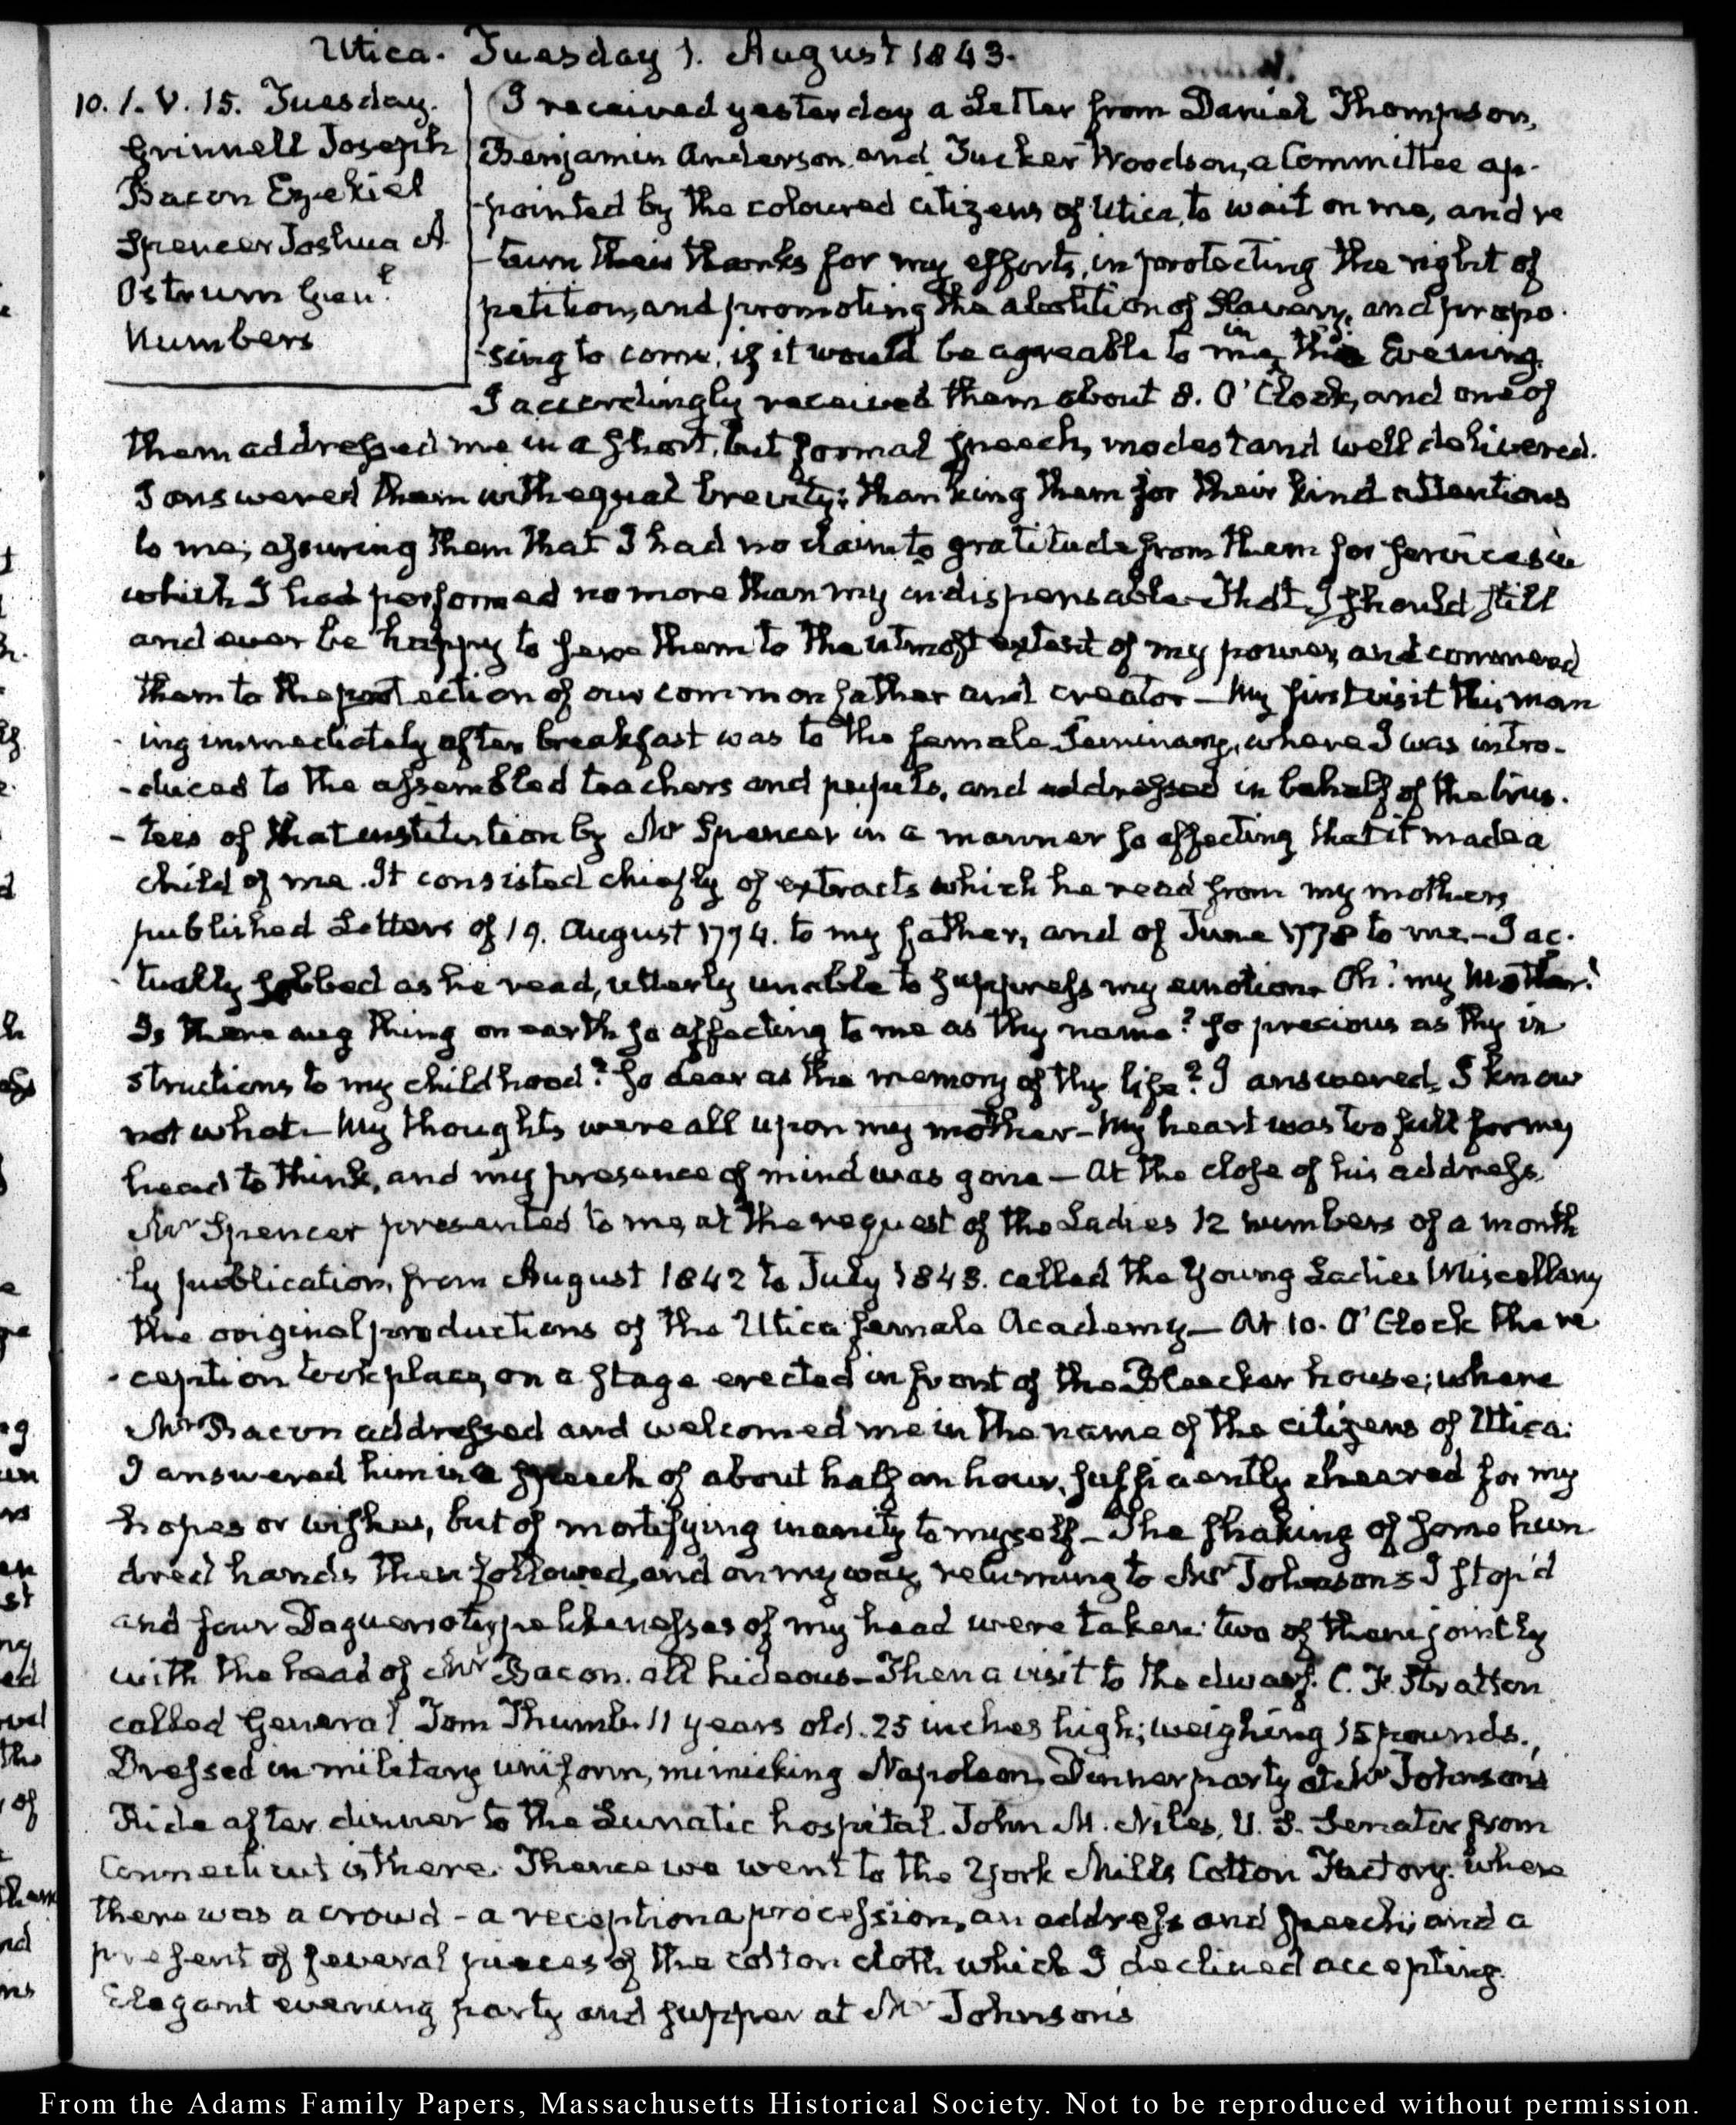 Utica. Tuesday 1. August 1843.
10. I. V. 15. Tuesday.
Grinnell Joseph
Bacon Ezekiel
Spencer Joshua A
Ostrum Gen.l
Numbers
I received yesterday a Letter from Daniel Thompson,
Benjamin Anderson and Tucker Woodson, a Committee ap-
-pointed by the coloured citizens of Utica, to wait on me, and re
-turn their thanks for my efforts, in protecting the right of
petition, and promoting the abolition of Slavery, and propo-
-sing to come, if it would be agreable to me, in the Evening.
I accordingly received them about 8. O'Clock, and one of
them addressed me in a short, but formal speech, modest and well delivered.
I answered them with equal brevity; thanking them for their kind attentions
to me; assuring them that I had no claim to gratitude from them for services in
which I had performed no more than my indispensable That I should still
and ever be happy to serve them to the utmost extent of my power, and commend
them to the protection of our common father and creator — My first visit this morn
-ing immediately after breakfast was to the female Seminary, where I was intro-
-duced to the assembled teachers and pupils, and addressed in behalf of the trus-
-tees of that institution by Mr Spencer in a manner so affecting that it made a
child of me. It consisted chiefly of extracts which he read from my mothers
published Letters of 19. August 1774. to my father, and of June 1778 to me - I ac-
-tually sobbed as he read, utterly unable to suppress my emotion. Oh! my Mother!
Is there any thing on earth so affecting to me as thy name? so precious as thy in
structions to my childhood? so dear as the memory of thy life? I answered, I know
not what — My thoughts were all upon my mother - My heart was too full for my
head to think, and my presence of mind was gone — At the close of his address
Mr Spencer presented to me, at the request of the Ladies 12 numbers of a month
ly publication, from August 1842 to July 1843. called the Young Ladies Miscellany
the original productions of the Utica female Academy — At 10. O'Clock the re
-ception took place, on a stage erected in front of the Bleecker house; where
Mr Bacon addressed and welcomed me in the name of the citizens of Utica:
I answered him in a speech of about half an hour, sufficiently cheered for my
hopes or wishes, but of mortifying inanity to myself - The shaking of some hun
dred hands then followed, and on my way, returning to Mr Johnson's I stop'd
and four Daguerrotype likenesses of my head were taken: two of them jointly
with the head of Mr Bacon. all hideous - Then a visit to the dwarf. C. F. Stratton
called General Tom Thumb. 11 years old. 25 inches high; weighing 15 pounds.,
Dressed in military uniform, mimicking Napoleon, Dinner party at Mr Johnsons
Ride after dinner to the Lunatic hospital. John M. Niles, U. S. Senator from
Connecticut is there. Thence we went to the York Mills Cotton Factory. where
there was a crowd - a reception a procession, an address and speech; and a
present of several pieces of the cotton cloth which I declined accepting.
Elegant evening party and supper at Mr Johnson's
From the Adams Family Papers, Massachusetts Historical Society. Not to be reproduced without permission.